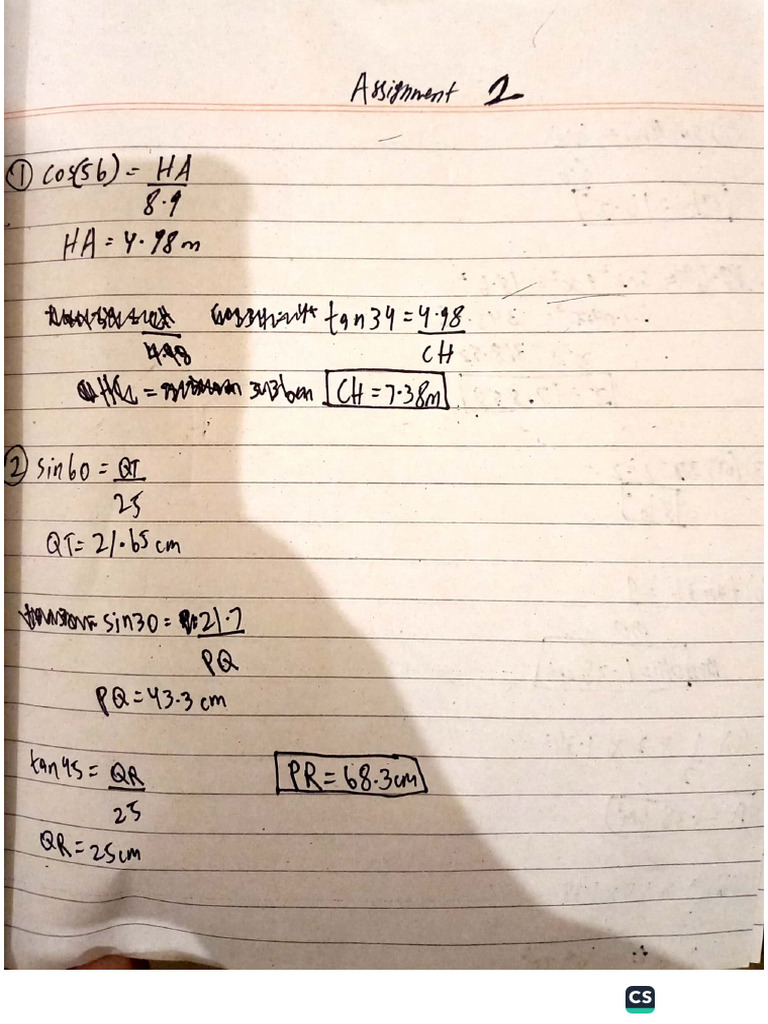 Assignment 2
① cos(56) = HA
8.9
HA = 4.98 m
tan 34 = 4.98
4.98
CH
= 3.36m CH = 7.38m
② sin 60 = QT
25
QT = 21.65 cm
sin 30 = 21.7
PQ
PQ = 43.3 cm
tan 45 = QR
25
PR = 68.3cm
QR = 25cm
CS